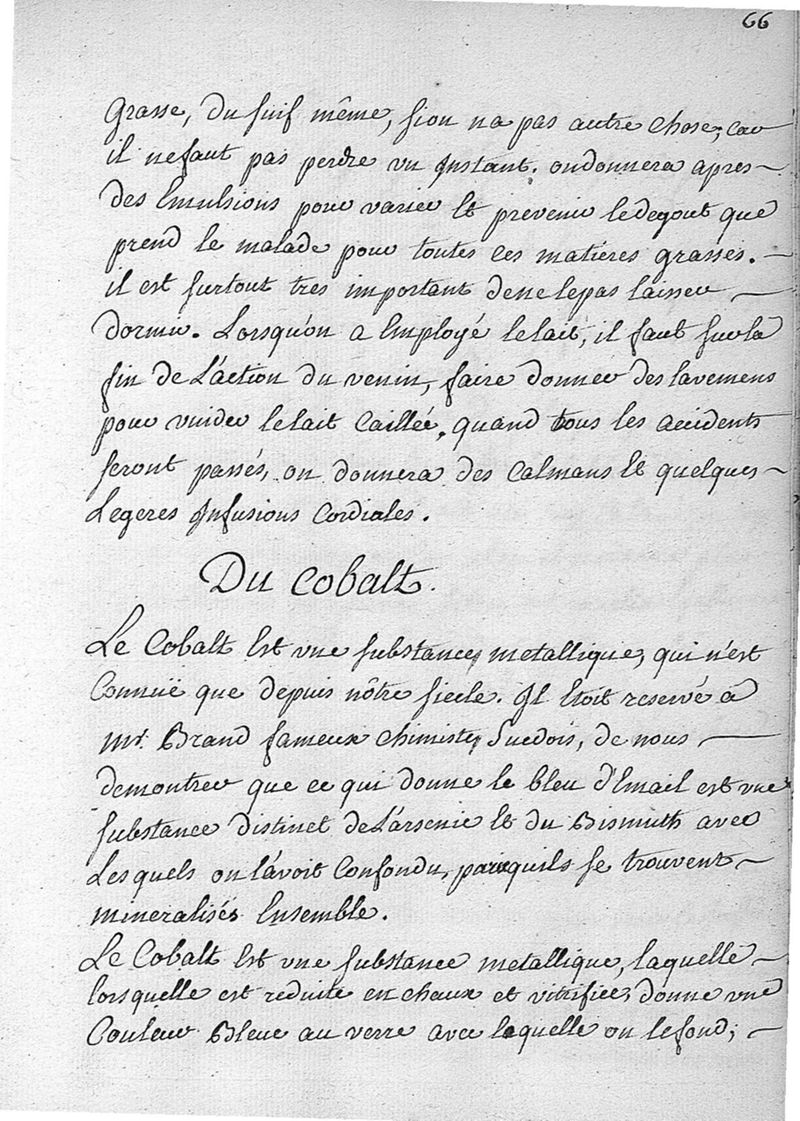 66
grasse, du suif même, si on na pas autre chose; car
il ne faut pas perdre un Instant. on donnera apres
des Emulsions pour varier Et prevenir le degout que
prend le malade pour toutes ces matieres grasses.
il est surtout tres important de ne le pas laisser
dormir. Lorsqu'on a Employé le lait, il faut sur la
fin de L'action du venin, faire donner des lavemens
pour vuider le lait Caillée. quand tous les accidents
seront passés, on donnera des Calmans Et quelques
Legeres Infusions Cordiales.
Du Cobalt.
Le Cobalt Est une substance metallique, qui n'est
Connuë que depuis nôtre siecle. Il Etoit reservé a
Mr. Brand fameux chimiste Suedois, de nous
demontrer que ce qui donne le bleu d'Email est une
substance distinct de L'arsenic Et du Bismuth avec
Lesquels on l'avoit Confondu, parcequils se trouvent
mineralisés Ensemble.
Le Cobalt Est une substance metallique, laquelle
lorsquelle est reduite en chaux et vitrifiée, donne une
Couleur Bleue au verre avec lequelle on le fond;